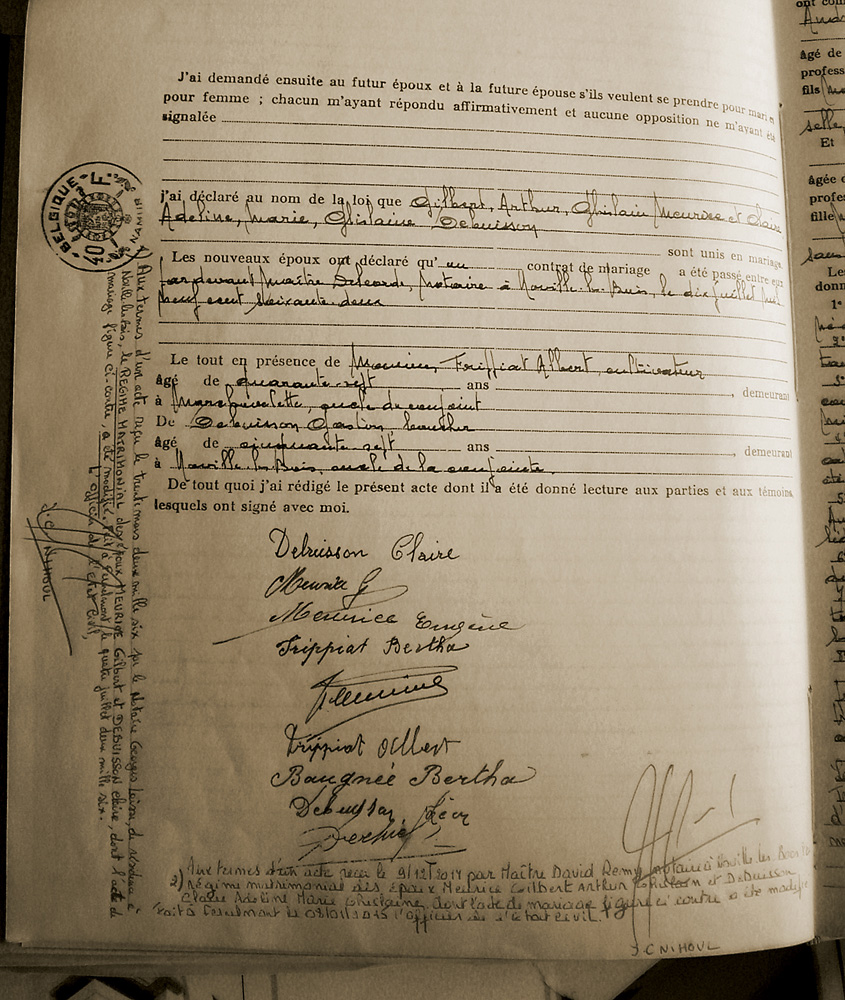 J'ai demandé ensuite au futur époux et à la future épouse s'ils veulent se prendre pour mari et
pour femme ; chacun m'ayant répondu affirmativement et aucune opposition ne m'ayant été
signalée
j'ai déclaré au nom de la loi que Gilbert, Arthur, Ghislain Meurice et Claire
Adeline, Marie, Ghislaine Debuisson
sont unis en mariage.
Les nouveaux époux ont déclaré qu'un contrat de mariage a été passé entre eux
par devant Maître Notaire à Noville-les-Bois, le dix juillet mil
neuf cent soixante deux
Le tout en présence de Monsieur Frippiat Albert, cultivateur
âgé de quarante-sept ans , demeurant
à Marchovelette, oncle du conjoint
De Debuisson Gaston,
âgé de cinquante sept ans , demeurant
à Noville les Bois, oncle de la conjointe.
De tout quoi j'ai rédigé le présent acte dont il a été donné lecture aux parties et aux témoins,
lesquels ont signé avec moi.
Debuisson Claire
Meurice G
Meurice Eugène
Frippiat Bertha
Frippiat Albert
Baugnée Bertha
Debuisson Léon
2) Aux termes d'un acte reçu le 9/12/2014 par Maître David Remy, notaire à Noville les Bois
régime matrimonial des époux Meurice Gilbert Arthur Ghislain et Debuisson
Claire Adeline Marie Ghislaine, dont l'acte de mariage figure ci contre a été modifié
Fait à l'officier de l'état civil.
J.C NIHOUL
BELGIQUE
40 F.
1) Aux termes d'un acte reçu le trente mars deux mille six par le Notaire à
Noville les Bois, le REGIME MATRIMONIAL des époux MEURICE Gilbert et DEBUISSON Claire, dont l'acte de
mariage figure ci-contre, a été modifié. Fait à le quatre juillet deux mille six.
L'officier de l'état civil,
J.C NIHOUL
âgé de
profess
fils
Et
âgée d
profes
fille
Les
donn
1°